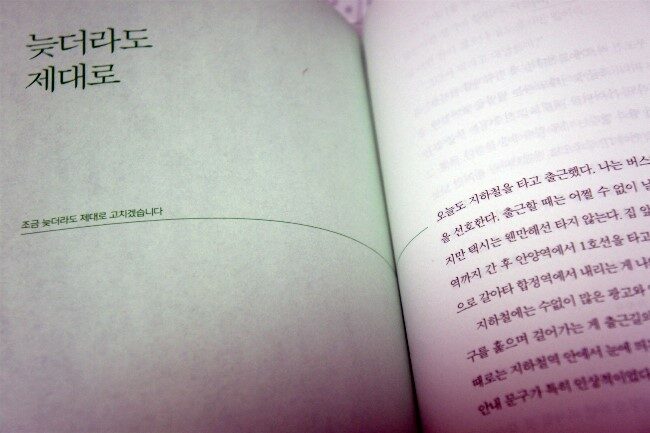 늦더라도
제대로
조금 늦더라도 제대로 고치겠습니다
오늘도 지하철을 타고 출근했다. 나는 버스
을 선호한다. 출근할 때는 어쩔 수 없이
지만 택시는 웬만해선 타지 않는다. 집 앞
역까지 간 후 안양역에서 1호선을 타고
으로 갈아타 합정역에서 내리는 게
지하철에는 수없이 많은 광고와
구를 훑으며 걸어가는 게 출근길의
때로는 지하철역 안에서 눈에
안내 문구가 특히 인상적이었다